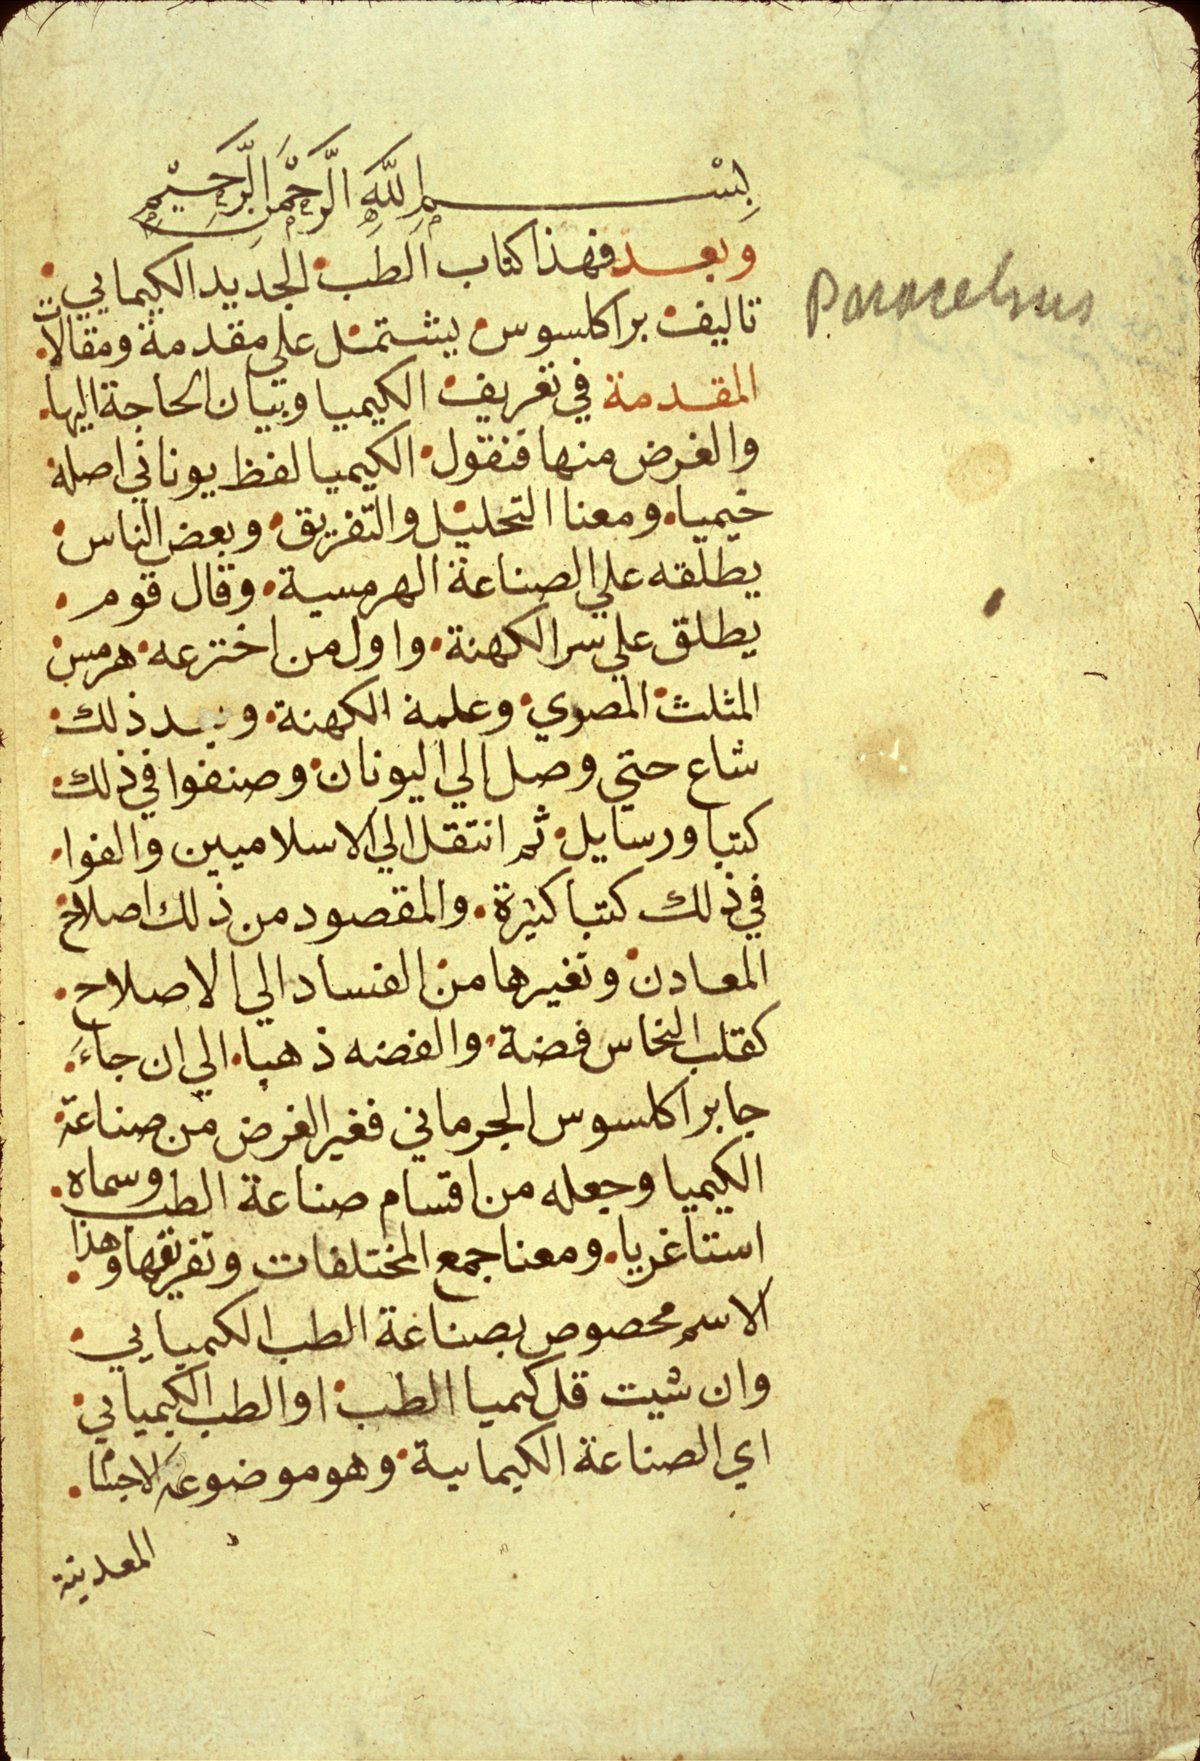 بِسْمِ اللَّهِ الرَّحْمَنِ الرَّحِيْمِ
وبعد فهذا كتاب الطب الجديد الكيمايي
Paracelsus
تاليف براكلسوس يشتمل علي مقدمة ومقالات
المقدمة في تعريف الكيميا وبيان الحاجة اليها
والغرض منها فنقول الكيميا لفظ يوناني اصله
خيميا ومعنا التحليل والتفريق وبعض الناس
يطلقه علي الصناعة الهرمسية وقال قوم
يطلق علي سر الكهنة واول من اخترعه هرمس
المثلث المصري وعلمه الكهنة وبعد ذلك
شاع حتي وصل الي اليونان وصنفوا في ذلك
كتبا ورسايل ثم انتقل الي الاسلاميين والفوا
في ذلك كتبا كثيرة والمقصود من ذلك اصلاح
المعادن وتغيرها من الفساد الي الاصلاح
كقلب النحاس فضة والفضه ذهبا الي ان جاء
جا براكلسوس الجرماني فغير الغرض من صناعة
الكيميا وجعله من اقسام صناعة الطب وسماه
استاغريا ومعنا جمع المختلفات وتفريقها وهذا
الاسم مخصوص بصناعة الطب الكميايي
وان شيت قل كيميا الطب او الطب الكيميايي
اي الصناعة الكيمايية وهو موضوعه
المعدينة